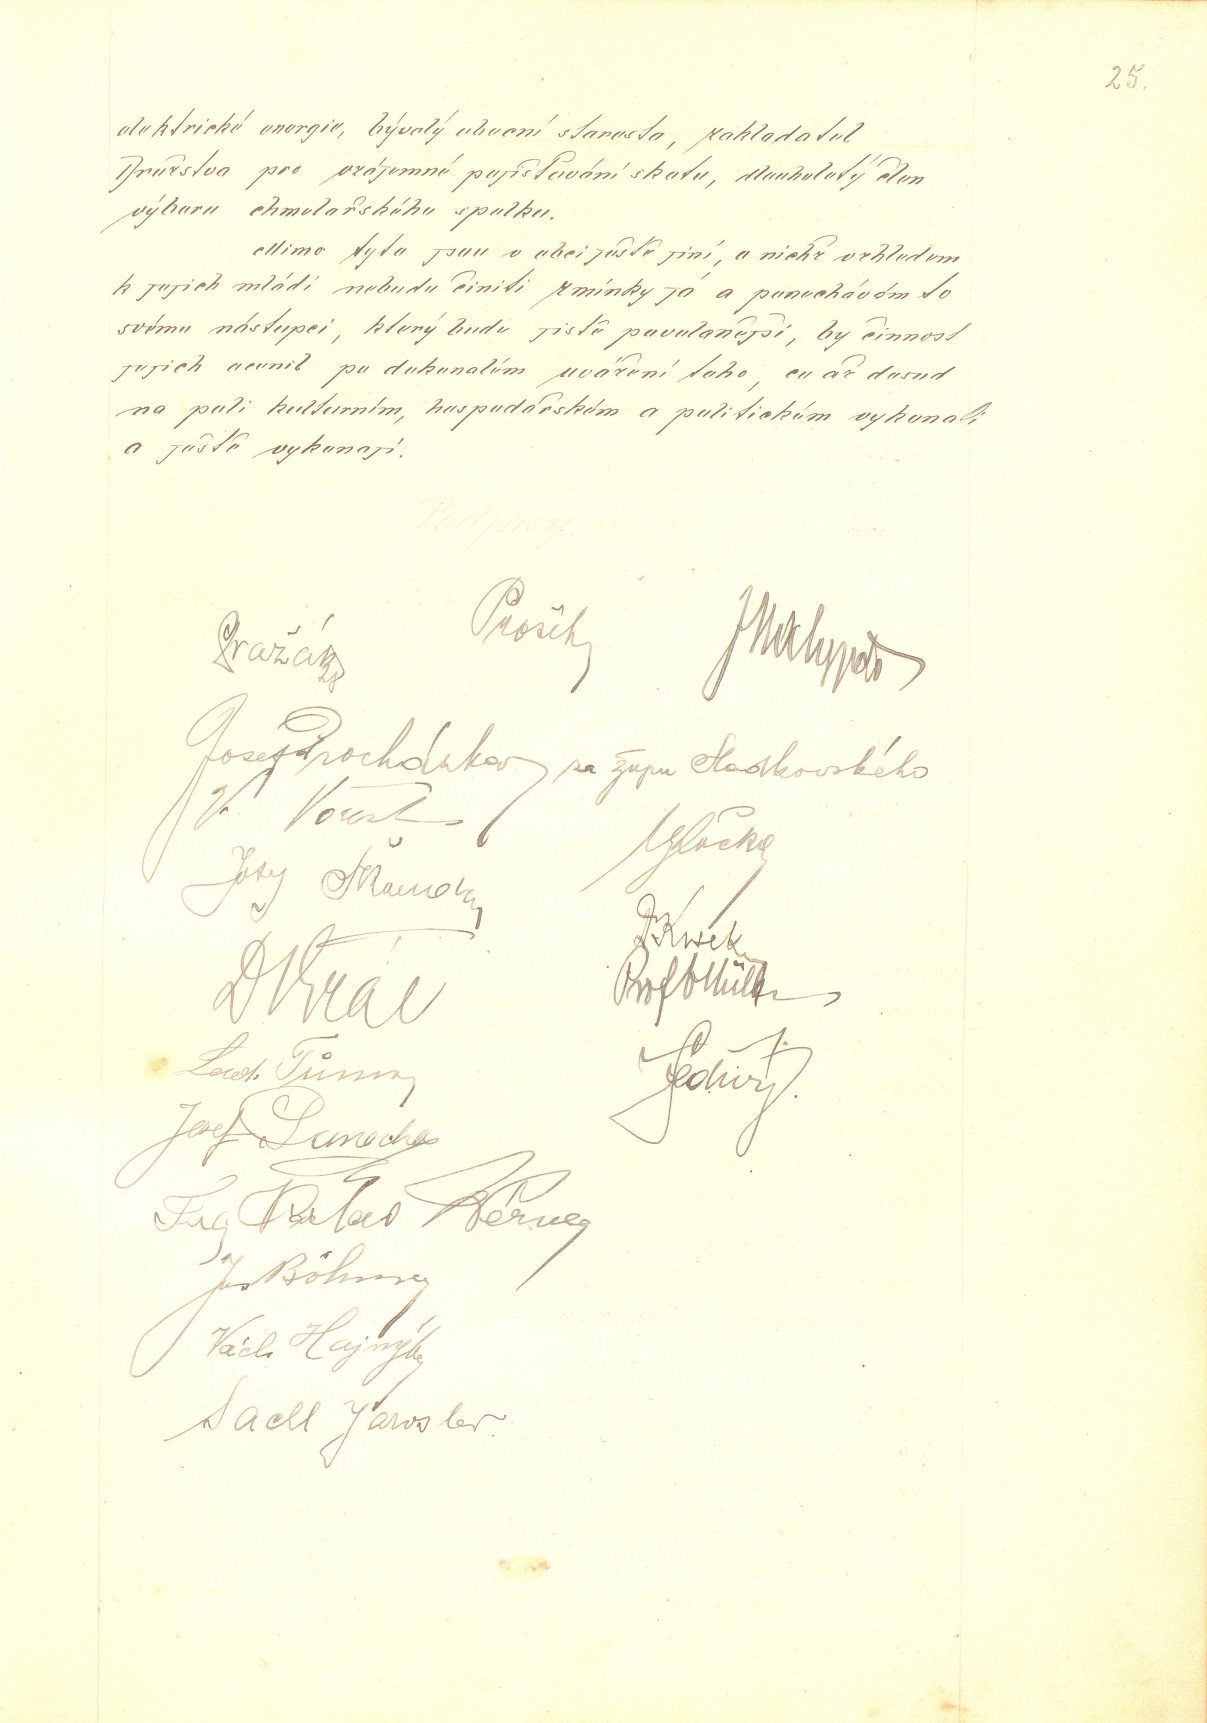 25.
elektrické energie, bývalý obecní starosta, zakladatel
Družstva pro vzájemné pojišťování skotu, dlouholetý člen
výboru chmelařského spolku.
Mimo tyto jsou v obci ještě jiní, o nichž vzhledem
k jejich mládí nebudu činiti zmínky já a ponechávám to
svému nástupci, který bude jistě povolanější, by činnost
jejich ocenil po dokonalém uvážení toho, co až dosud
na poli kulturním, hospodářském a politickém vykonali
a ještě vykonají.
Podpisy.
Pražák Prošek
Josef Procházka za župu Sladkovského
V.
Josef
D Král
Lad. Tůma
Josef
Ing
Jos Böhm
Václ. Hajný
Sadil Jaroslav.
Kůrek
Prof
Šedivý.